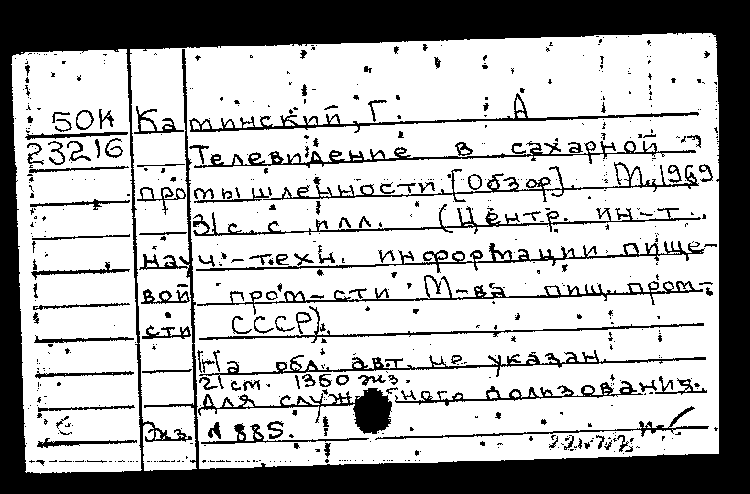 50К Каминский, Г. А
23216 Телевидение в сахарной
промышленности. [Обзор]. М., 1969.
31с. с илл. (Центр. ин-т
науч.-техн. информации пище-
вой пром-сти М-ва пищ. пром-
сти СССР).
На обл. авт. не указан.
21см. 1350 экз.
Для служебного пользования.
Экз. № 885.